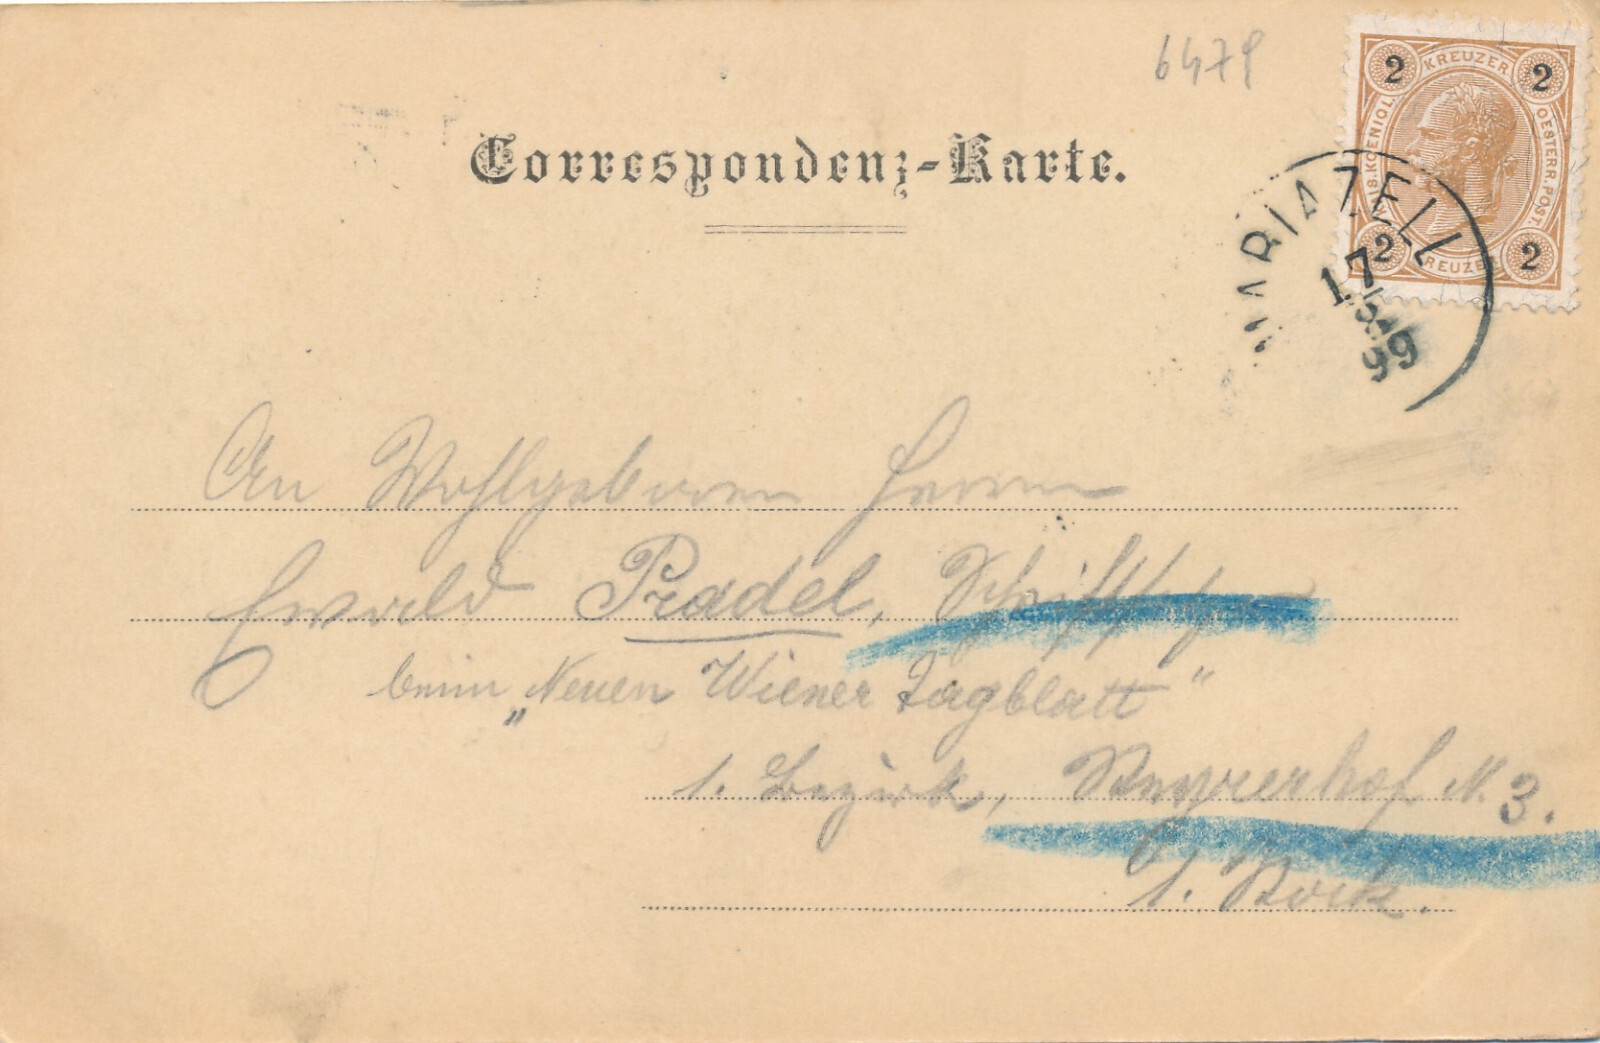 6479
2 KREUZER 2
KAIS. KOENIGL. OESTERR. POST.
2 KREUZER 2
MARIAZELL
17
99
Correspondenz-Karte.
An Wohlgeboren Herrn
Ewald Pradel,
beim „Neuen Wiener Tagblatt"
1. Bezirk, Steyrerhof N. 3.
1. Stock.